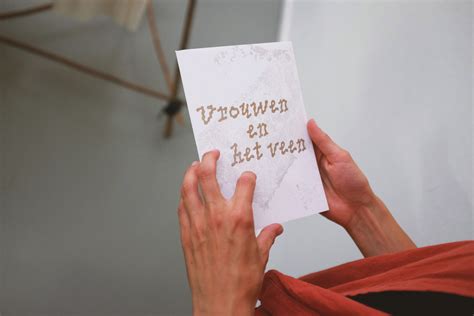 Vrouwen
en
het veen